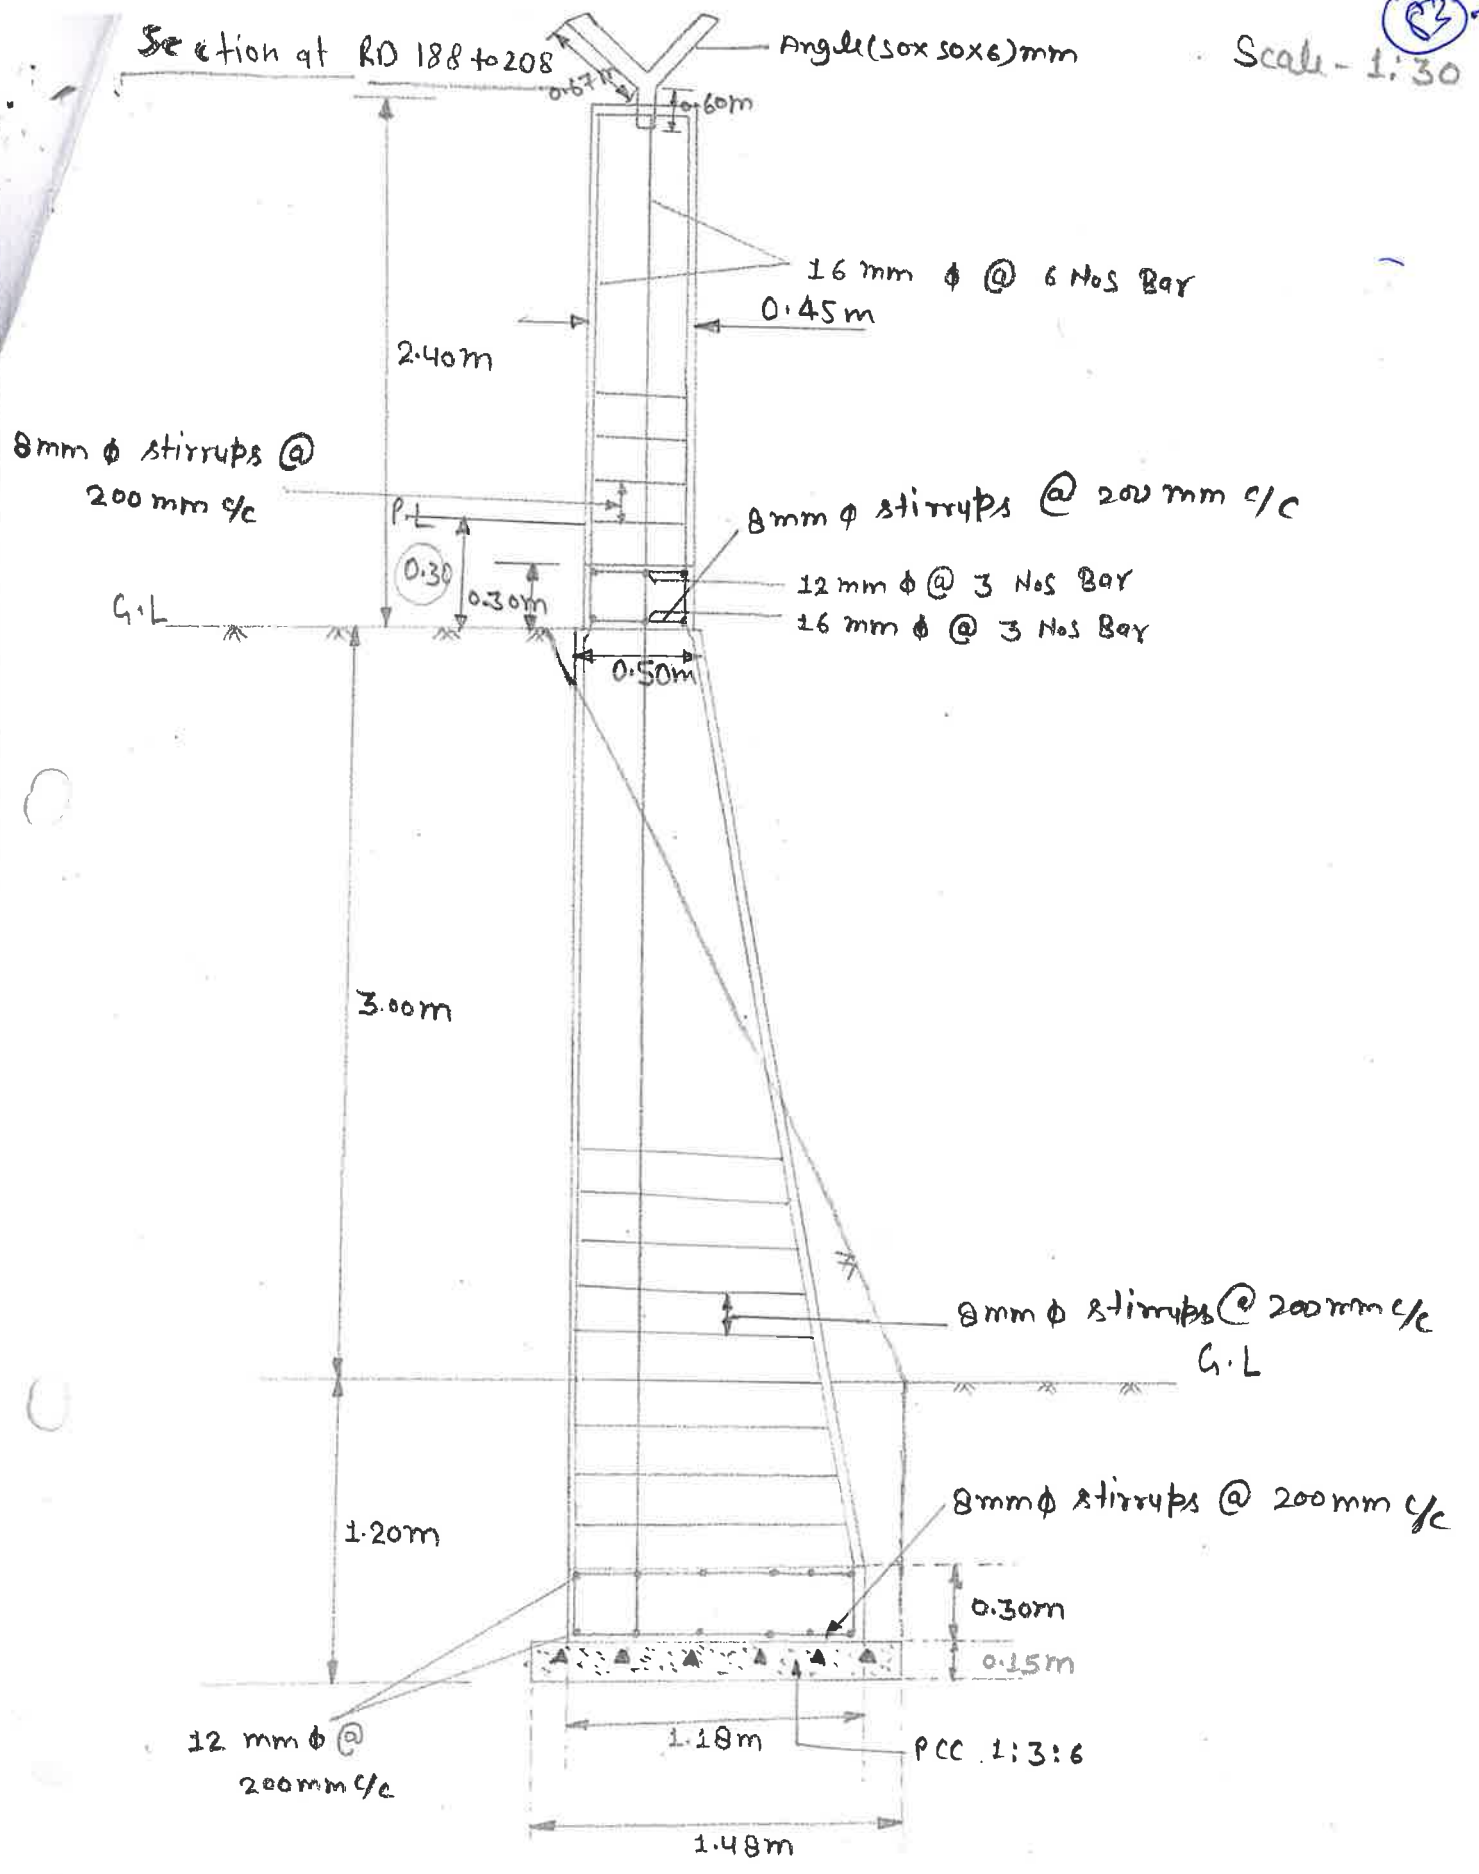 Section at RD 188 to 208
Angle (50x50x6)mm
Scale - 1:30
0.67m
0.60m
16 mm ϕ @ 6 Nos Bar
0.45m
2.40m
8mm ϕ stirrups @
200 mm c/c
P.L
8mm ϕ stirrups @ 200 mm c/c
0.30
0.30m
12 mm ϕ @ 3 Nos Bar
16 mm ϕ @ 3 Nos Bar
G.L
0.50m
3.00m
8mm ϕ stirrups @ 200mm c/c
G.L
8mm ϕ stirrups @ 200mm c/c
1.20m
0.30m
0.15m
12 mm ϕ @
200mm c/c
1.18m
PCC 1:3:6
1.48m